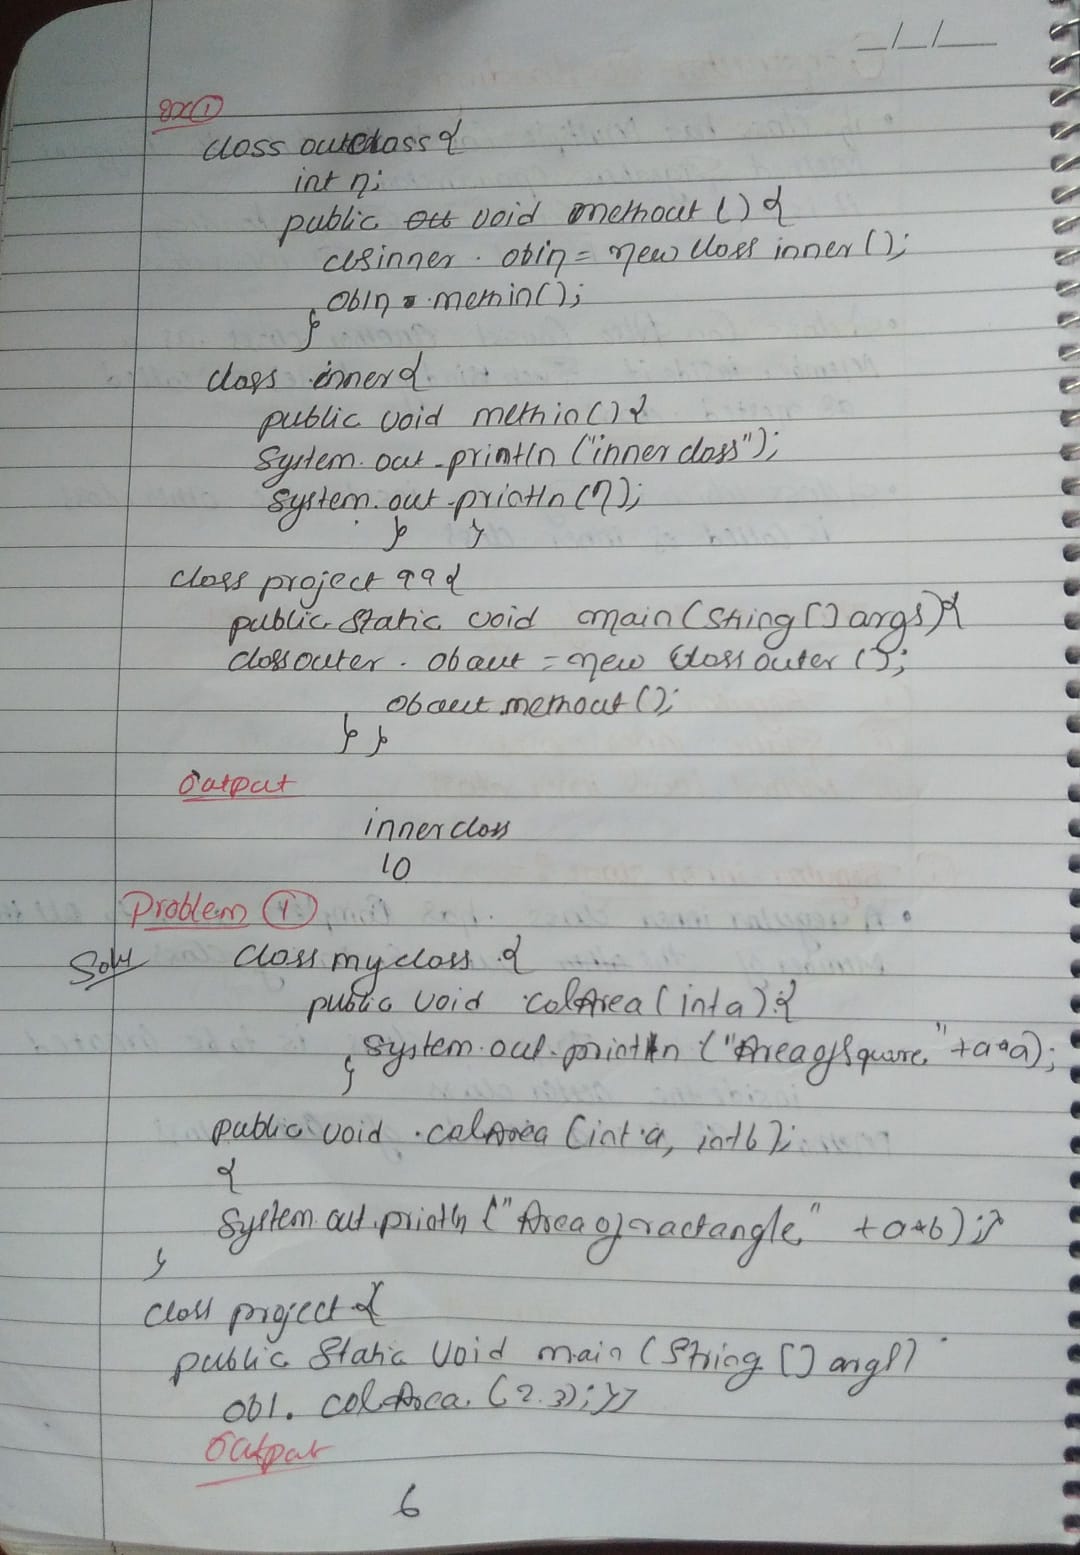 _/_/__
ex ①
class outclass {
int n;
public void methout () {
clsinner obin = new class inner ();
obin . methin();
}
class inner {
public void methin () {
System.out.println ("inner class");
System.out.println (n);
} }
class project 99 {
public static void main (String [] args) {
classouter obout = new classouter ();
obout methout ();
} }
Output
inner class
10
Problem ①
Soln class myclass {
public void calArea (int a) {
System.out.println ("Area of Square" + a*a);
}
public void calArea (int a, int b);
{
System.out.println ("Area of ractangle" + a*b) ;}
}
class project {
public static void main (String [] args)
ob1. calArea. (2.3); }}
Output
6